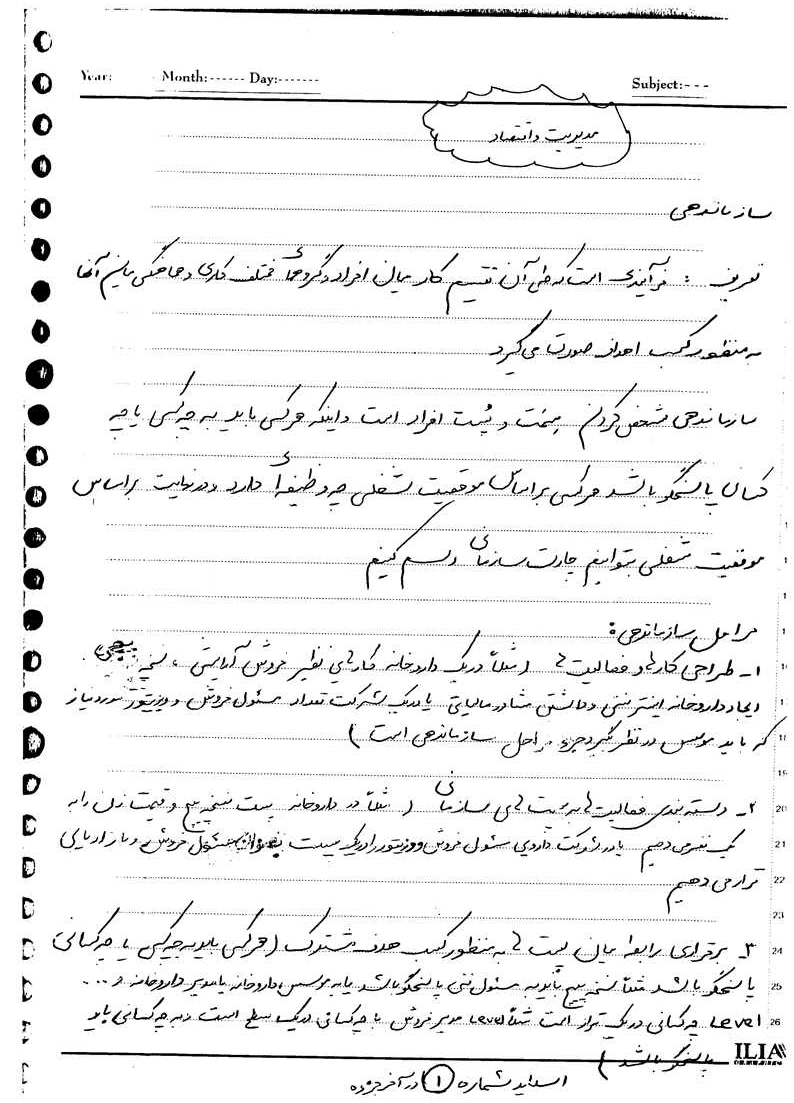 Year: Month:------ Day:------- Subject:---
مدیریت و اقتصاد
سازماندهی
تعریف : فرآیندی است که طی آن تقسیم کار میان افراد و گروههای مختلف کاری و هماهنگی میان آنها
به منظور کسب اهداف صورت می گیرد
سازماندهی مشخص کردن سمت و پست افراد است و اینکه هرکس باید به چه کسی یا چه
کسانی پاسخگو باشد هرکس بر اساس موقعیت شغلی چه وظیفه ای دارد و در نهایت بر اساس
موقعیت شغلی بتوانیم چارت سازمانی رسم کنیم
مراحل سازماندهی :
۱- طراحی کارها و فعالیت ها ( مثلاً در یک داروخانه کارهایی نظیر فروش آرایشی ، نسخه پیچی
ایجاد داروخانه اینترنتی و داشتن مشاور مالیاتی یا در یک شرکت تعداد مسئول فروش و ویزیتور مورد نیاز
که باید موسس در نظر گیرد جزء مراحل سازماندهی است )
۲- دسته بندی فعالیت ها به پست های سازمانی ( مثلاً در داروخانه پست نسخه پیچ و قیمت زن را به
یک نفر می دهیم یا در شرکت دارویی مسئول فروش و ویزیتور را در یک پست بعنوان مسئول فروش و بازاریابی
قرار می دهیم
۳- برقراری رابطه میان پست ها به منظور کسب هدف مشترک ( هرکس باید به چه کسی یا چه کسانی
پاسخگو باشد مثلاً نسخه پیچ باید به مسئول فنی پاسخگو باشد یا به موسس داروخانه یا مدیر داروخانه و ...
Level چه کسانی در یک تراز است مثلاً Level مدیر فروش با چه کسانی در یک سطح است و به چه کسانی باید
پاسخگو باشد )
ILIA
اسلاید شماره ۱ در آخر جزوه